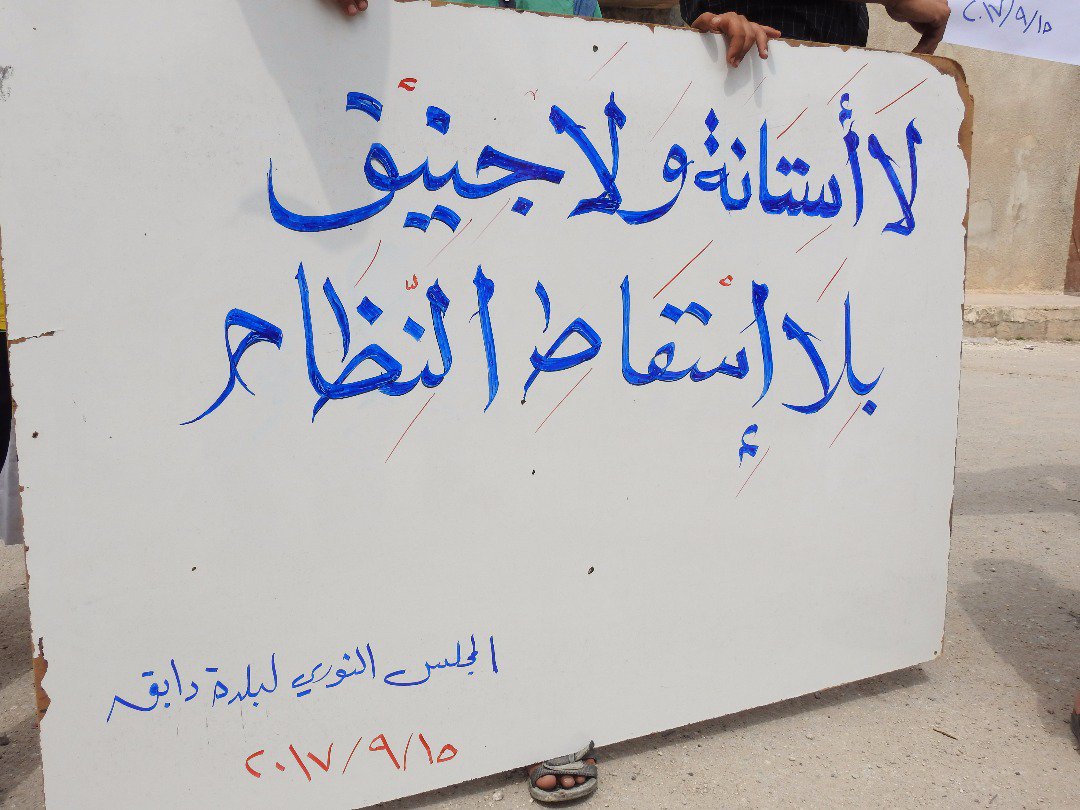 لا أستانة ولا جنيق
بلا إسقاط النظام
المجلس الثوري لبلدة دابق
٢٠١٧/٩/١٥
٢٠١٧/٩/١٥